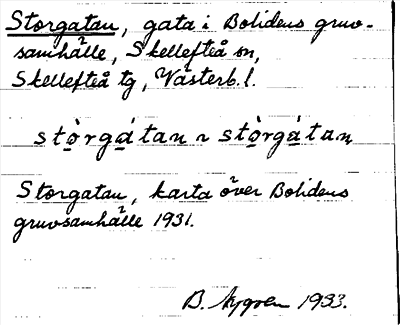 Storgatan, gata i Bolidens gruv-
samhälle, Skellefteå sn,
Skellefteå tg, Västerb. l.
stò̱rgá̱tan ~ stò̱rgà̱tan
Storgatan, karta över Bolidens
gruvsamhälle 1931.
B. Nygren 1933.